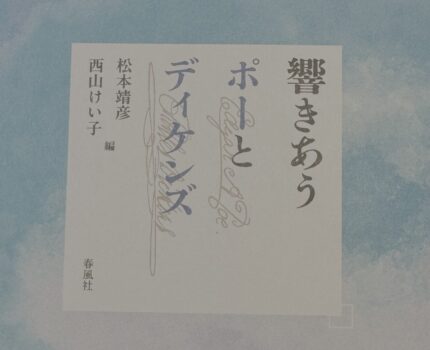 響きあう
ポーと
ディケンズ
Edgar A Poe.
Charles Dickens
松本靖彦
西山けい子
編
春風社